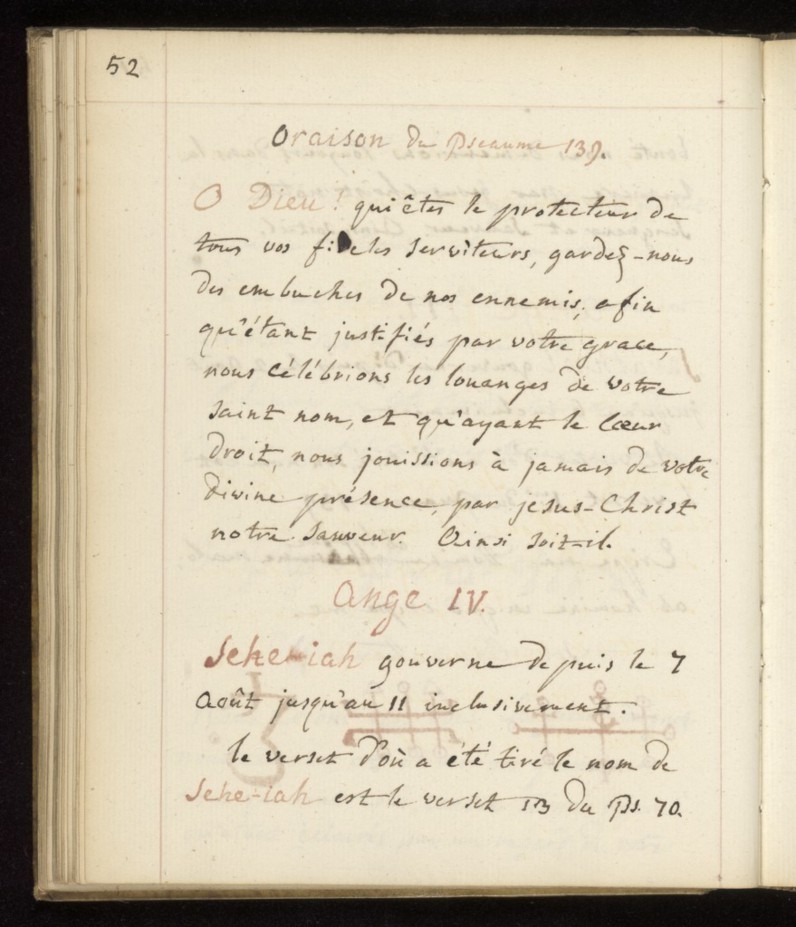 52
Oraison du Pseaume 139.
O Dieu! qui êtes le protecteur de
tous vos fideles serviteurs, gardez-nous
des embuches de nos ennemis, afin
qu'étant justifiés par votre grace,
nous célébrions les louanges de votre
saint nom, et qu'ayant le Cœur
droit, nous jouissions à jamais de votre
divine présence, par jesus-Christ
notre Sauveur. Ainsi soit-il.
Ange IV.
Sehe-iah gouverne depuis le 7
Août jusqu'au 11 inclusivement.
le verset d'où a été tiré le nom de
Sehe-iah est le verset 13 du Ps. 70.